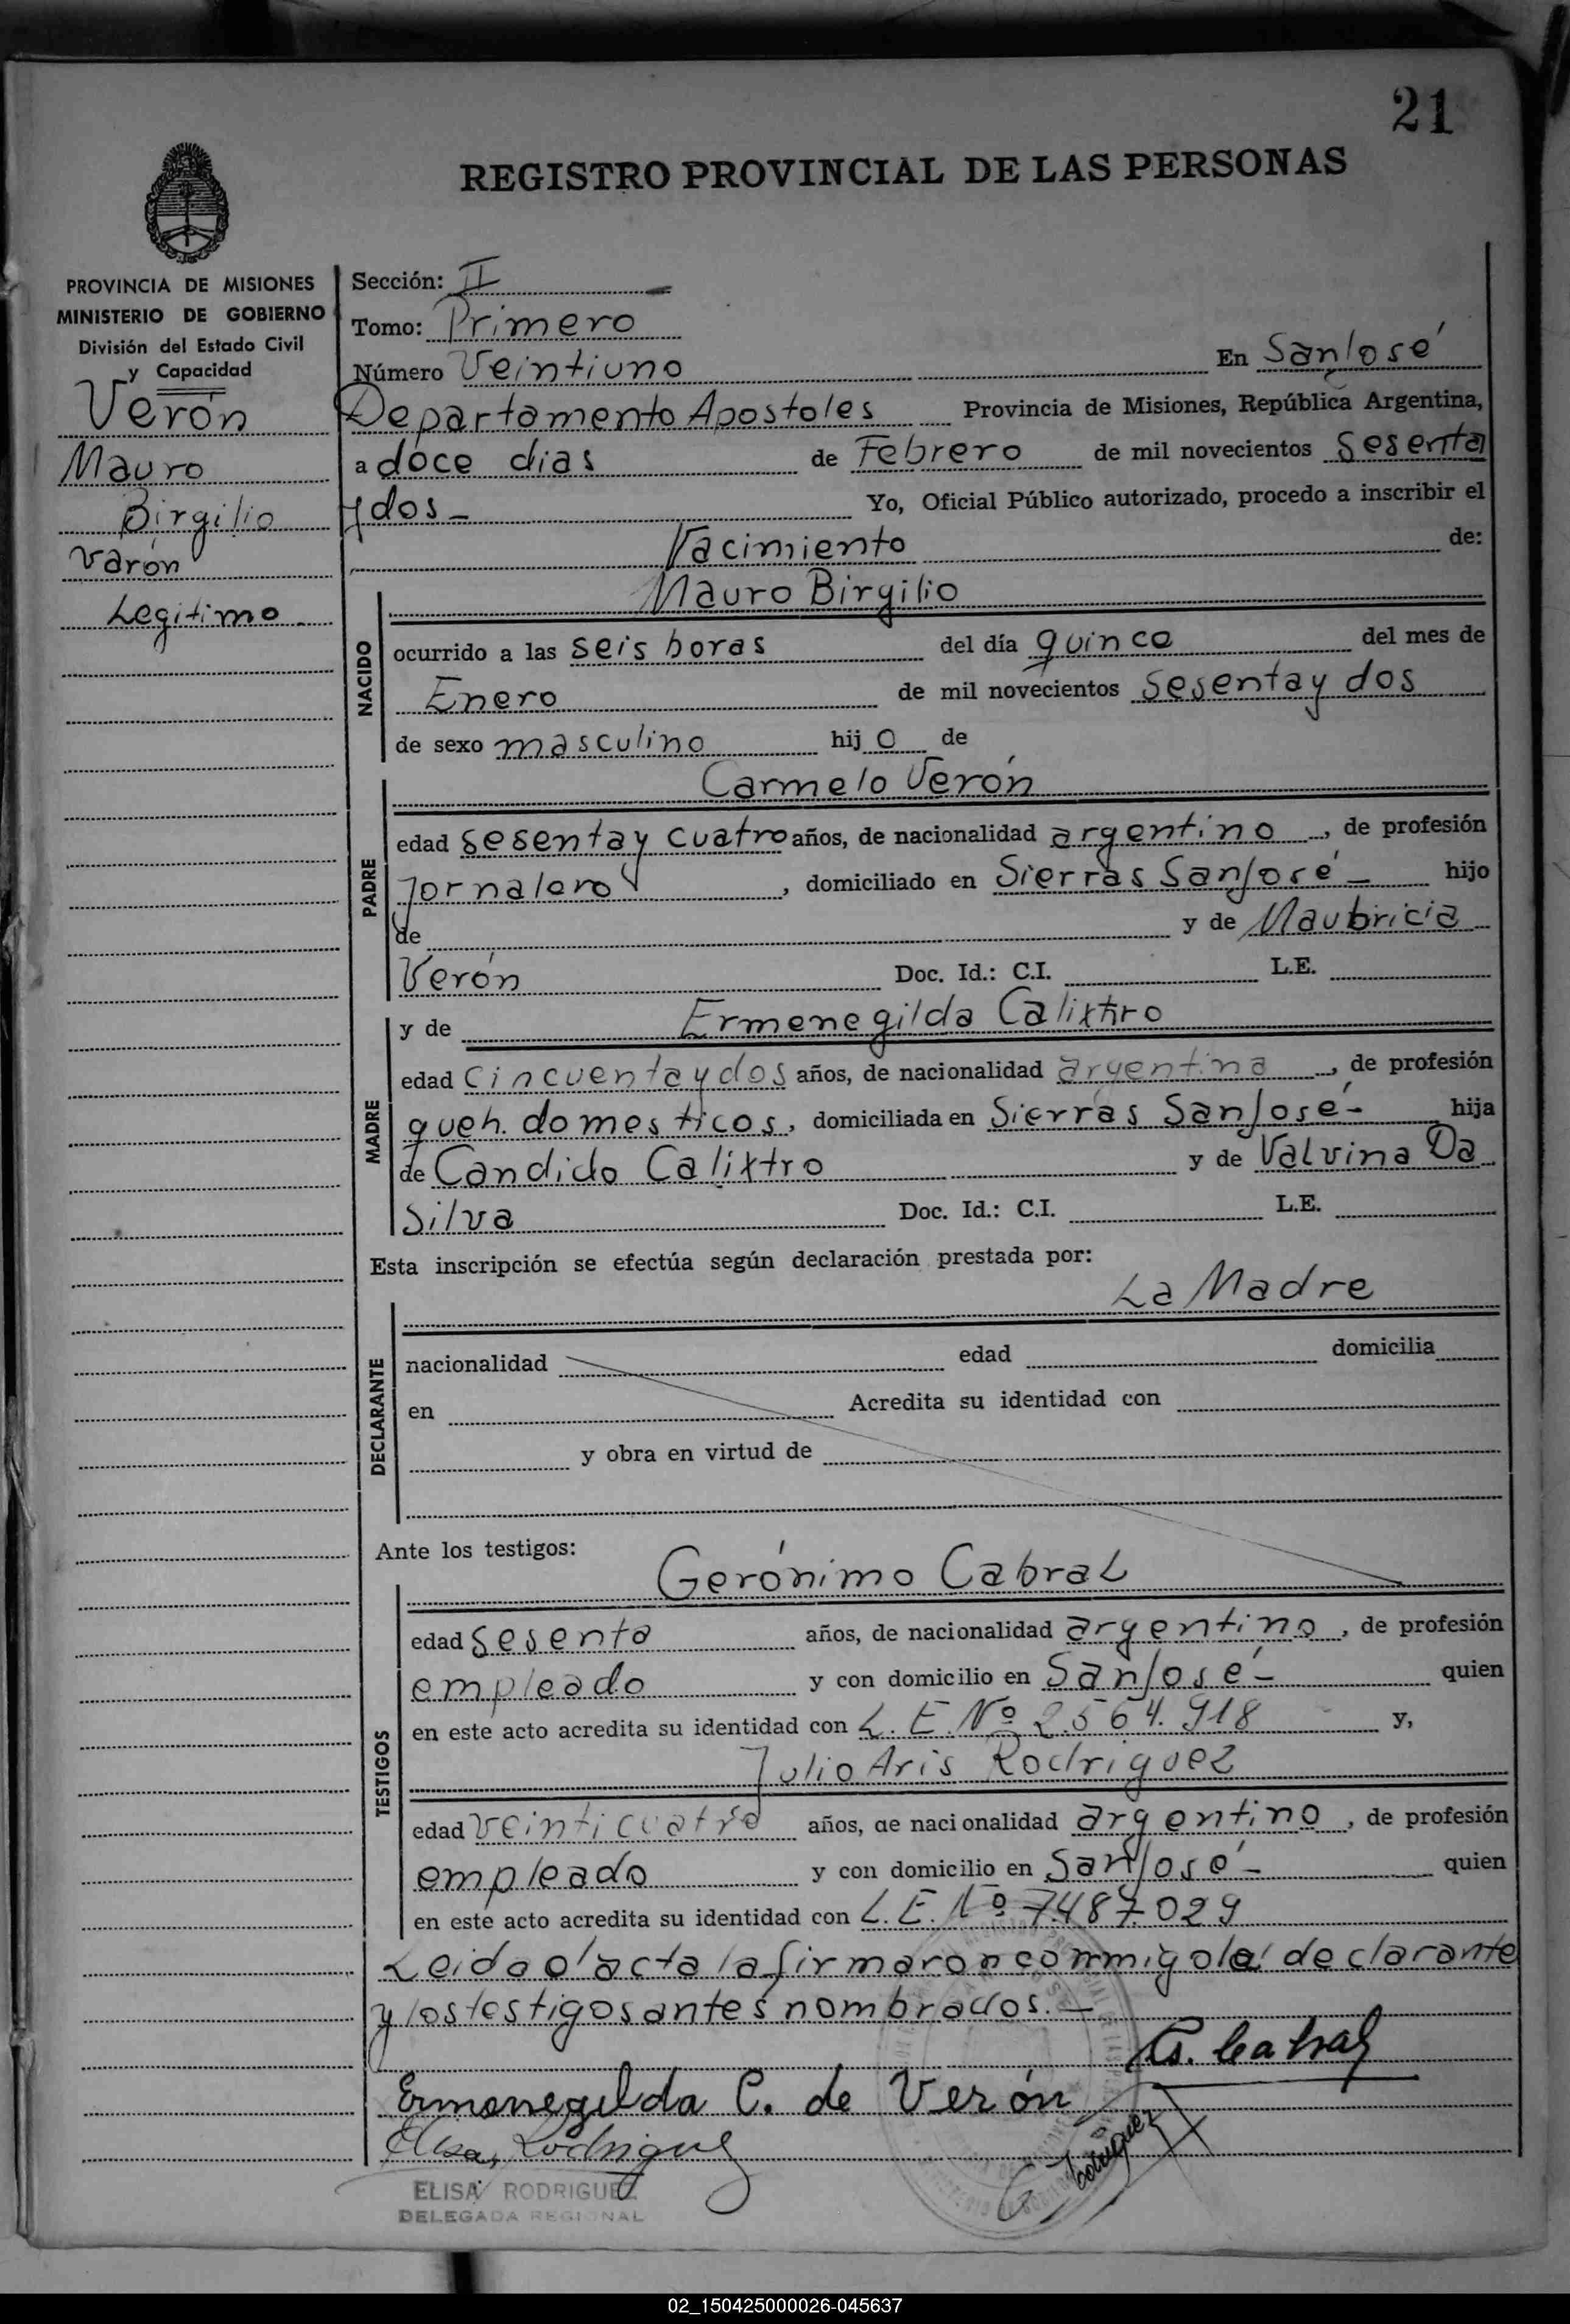 21
REGISTRO PROVINCIAL DE LAS PERSONAS
PROVINCIA DE MISIONES
MINISTERIO DE GOBIERNO
División del Estado Civil
y Capacidad
Verón
Mauro
Birgilio
varón
Legitimo
Sección: II
Tomo: Primero
Número Veintiuno En San José
Departamento Apostoles Provincia de Misiones, República Argentina,
a doce dias de Febrero de mil novecientos Sesenta
y dos Yo, Oficial Público autorizado, procedo a inscribir el
Nacimiento de:
NACIDO
Mauro Birgilio
ocurrido a las seis horas del día quince del mes de
Enero de mil novecientos sesenta y dos
de sexo masculino hijo de
PADRE
Carmelo Verón
edad sesenta y cuatro años, de nacionalidad argentino, de profesión
Jornalero, domiciliado en Sierras San José hijo
de y de Maubricia
Verón Doc. Id.: C.I. L.E.
MADRE
y de Ermenegilda Calixtro
edad cincuenta y dos años, de nacionalidad argentina, de profesión
queh. domesticos, domiciliada en Sierras San José- hija
de Candido Calixtro y de Valvina Da
Silva Doc. Id.: C.I. L.E.
Esta inscripción se efectúa según declaración prestada por:
DECLARANTE
La Madre
nacionalidad edad domicilia
en Acredita su identidad con
y obra en virtud de
Ante los testigos:
TESTIGOS
Gerónimo Cabral
edad sesenta años, de nacionalidad argentino, de profesión
empleado y con domicilio en San José- quien
en este acto acredita su identidad con L. E. Nº 2.564.918 y,
Julio Aris Rodriguez
edad veinticuatro años, de nacionalidad argentino, de profesión
empleado y con domicilio en San José- quien
en este acto acredita su identidad con L. E. Nº 7.487.029
Leida el acta la firmaron commigo la declarante
y los testigos antes nombrados.-
G. Cabral
Ermenegilda C. de Verón
Elisa Rodriguez
Rodriguez
ELISA RODRIGUEZ
DELEGADA REGIONAL
02_150425000026-045637